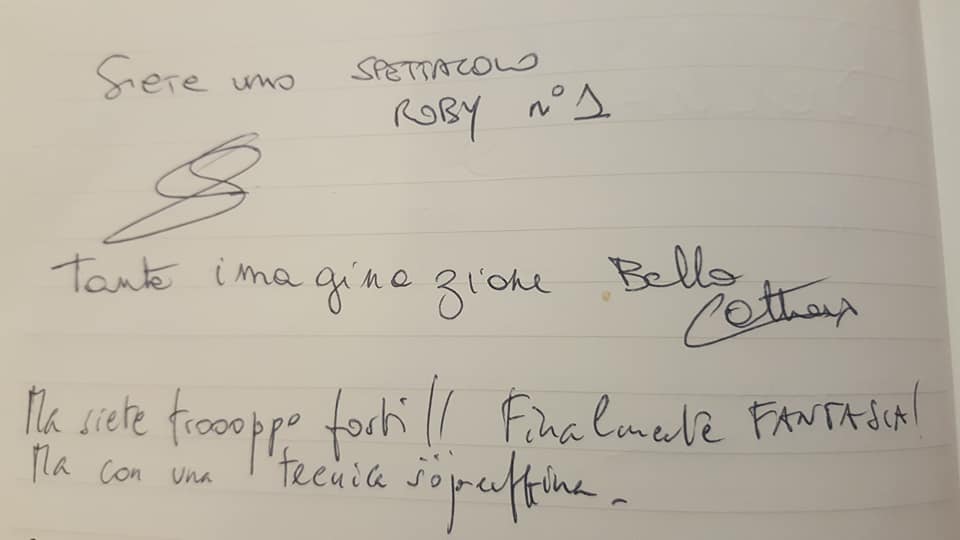 Siete uno SPETTACOLO
ROBY n° 1
Tante imaginazione Bello
Ma siete troooppo forti!! Finalmente FANTASIA!
Ma con una tecnica sopraffina.